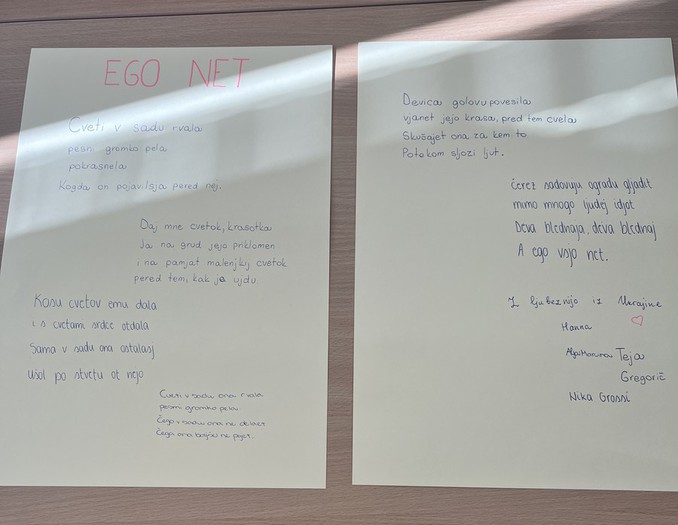 EGO NET
Cveti v sadu rvala
pesni gromko pela
pokrasnela
Kogda on pojavilsja pered nej.
Daj mne cvetok, krasotka
Ja na grud jejo priklomen
i na pamjat malenjkij cvetok
pered tem, kak ja ujdu.
Kosu cvetov emu dala
i s cvetami srdce otdala
Sama v sadu ona ostalasj
Ušol po svetu ot nejo
Cveti v sadu ona rvala
pesni gromko pela
Čego v sadu ona ne delaet
Čego ona boljše ne pojet.
Devica golovu povesila
vjanet jejo krasa, pred tem cvela
Skušajet ona za kem to
Potokom sljozi ljut.
čerez sadovuju ogradu gljadit
mimo mnogo ljudej idjot
Deva blednaja, deva blednaj
A ego vsjo net.
Z ljubeznijo iz Ukrajine
Hanna
Teja
Gregorič
Nika Grossi